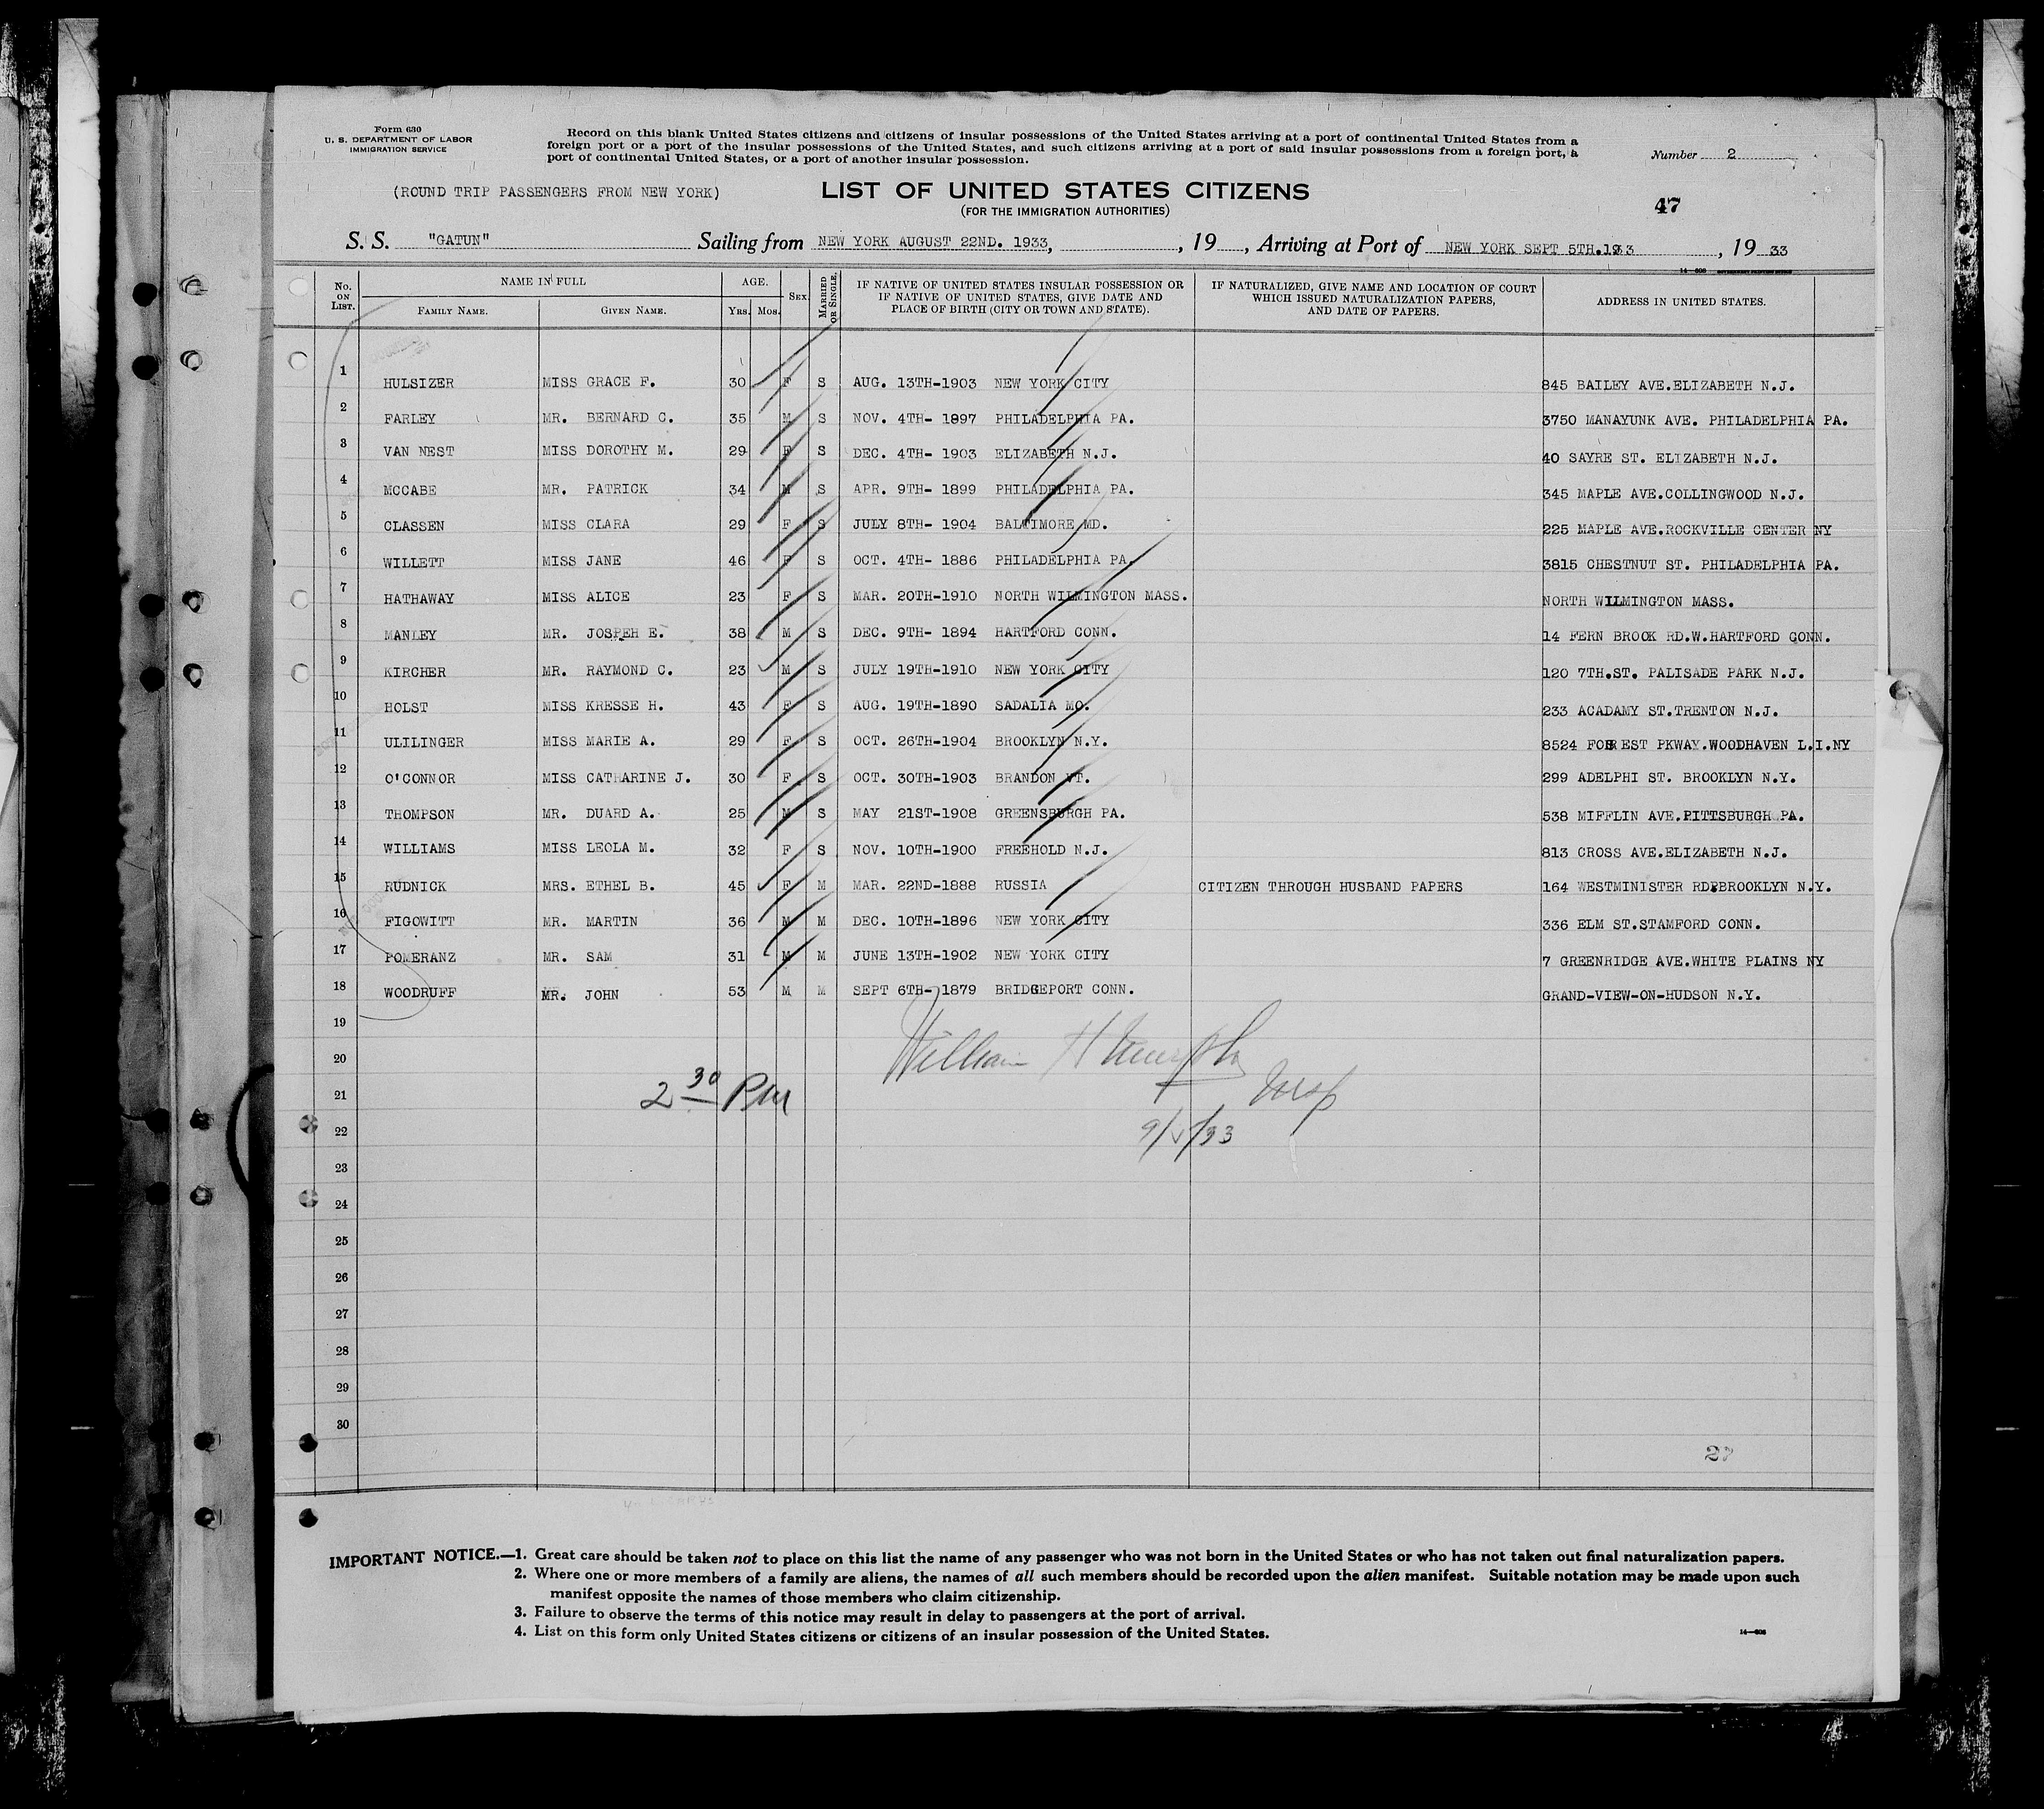 Form 630
U. S. DEPARTMENT OF LABOR
IMMIGRATION SERVICE
Record on this blank United States citizens and citizens of insular possessions of the United States arriving at a port of continental United States from a
foreign port or a port of the insular possessions of the United States, and such citizens arriving at a port of said insular possessions from a foreign port, a
port of continental United States, or a port of another insular possession.
Number 2
(ROUND TRIP PASSENGERS FROM NEW YORK)
LIST OF UNITED STATES CITIZENS
(FOR THE IMMIGRATION AUTHORITIES)
47
S. S. "GATUN" Sailing from NEW YORK AUGUST 22ND. 1933, , 19 , Arriving at Port of NEW YORK SEPT 5TH.1933 , 19 33
14—608 GOVERNMENT PRINTING OFFICE
No. ON LIST. NAME IN FULL FAMILY NAME. GIVEN NAME. AGE. YRS. MOS. SEX. MARRIED OR SINGLE. IF NATIVE OF UNITED STATES INSULAR POSSESSION OR IF NATIVE OF UNITED STATES, GIVE DATE AND PLACE OF BIRTH (CITY OR TOWN AND STATE). IF NATURALIZED, GIVE NAME AND LOCATION OF COURT WHICH ISSUED NATURALIZATION PAPERS, AND DATE OF PAPERS. ADDRESS IN UNITED STATES.
1 HULSIZER MISS GRACE F. 30 F S AUG. 13TH-1903 NEW YORK CITY 845 BAILEY AVE.ELIZABETH N.J.
2 FARLEY MR. BERNARD C. 35 M S NOV. 4TH- 1897 PHILADELPHIA PA. 3750 MANAYUNK AVE. PHILADELPHIA PA.
3 VAN NEST MISS DOROTHY M. 29 F S DEC. 4TH- 1903 ELIZABETH N.J. 40 SAYRE ST. ELIZABETH N.J.
4 MCCABE MR. PATRICK 34 M S APR. 9TH- 1899 PHILADELPHIA PA. 345 MAPLE AVE.COLLINGWOOD N.J.
5 CLASSEN MISS CLARA 29 F S JULY 8TH- 1904 BALTIMORE MD. 225 MAPLE AVE.ROCKVILLE CENTER NY
6 WILLETT MISS JANE 46 F S OCT. 4TH- 1886 PHILADELPHIA PA. 3815 CHESTNUT ST. PHILADELPHIA PA.
7 HATHAWAY MISS ALICE 23 F S MAR. 20TH-1910 NORTH WILMINGTON MASS. NORTH WILMINGTON MASS.
8 MANLEY MR. JOSPEH E. 38 M S DEC. 9TH- 1894 HARTFORD CONN. 14 FERN BROOK RD.W.HARTFORD CONN.
9 KIRCHER MR. RAYMOND C. 23 M S JULY 19TH-1910 NEW YORK CITY 120 7TH.ST. PALISADE PARK N.J.
10 HOLST MISS KRESSE H. 43 F S AUG. 19TH-1890 SADALIA MO. 233 ACADAMY ST.TRENTON N.J.
11 ULILINGER MISS MARIE A. 29 F S OCT. 26TH-1904 BROOKLYN N.Y. 8524 FORREST PKWAY.WOODHAVEN L.I.NY
12 O'CONNOR MISS CATHARINE J. 30 F S OCT. 30TH-1903 BRANDON VT. 299 ADELPHI ST. BROOKLYN N.Y.
13 THOMPSON MR. DUARD A. 25 M S MAY 21ST-1908 GREENSBURGH PA. 538 MIFFLIN AVE.PITTSBURGH PA.
14 WILLIAMS MISS LEOLA M. 32 F S NOV. 10TH-1900 FREEHOLD N.J. 813 CROSS AVE.ELIZABETH N.J.
15 RUDNICK MRS. ETHEL B. 45 F M MAR. 22ND-1888 RUSSIA CITIZEN THROUGH HUSBAND PAPERS 164 WESTMINISTER RD.BROOKLYN N.Y.
16 FIGOWITT MR. MARTIN 36 M M DEC. 10TH-1896 NEW YORK CITY 336 ELM ST.STAMFORD CONN.
17 POMERANZ MR. SAM 31 M M JUNE 13TH-1902 NEW YORK CITY 7 GREENRIDGE AVE.WHITE PLAINS NY
18 WOODRUFF MR. JOHN 53 M M SEPT 6TH- 1879 BRIDGEPORT CONN. GRAND-VIEW-ON-HUDSON N.Y.
19
20 William H Murphy
21 2 30 PM Insp
22 9/5/33
23
24
25
26
27
28
29
30
27
IMPORTANT NOTICE.—1. Great care should be taken not to place on this list the name of any passenger who was not born in the United States or who has not taken out final naturalization papers.
2. Where one or more members of a family are aliens, the names of all such members should be recorded upon the alien manifest. Suitable notation may be made upon such
manifest opposite the names of those members who claim citizenship.
3. Failure to observe the terms of this notice may result in delay to passengers at the port of arrival.
4. List on this form only United States citizens or citizens of an insular possession of the United States.
14—608